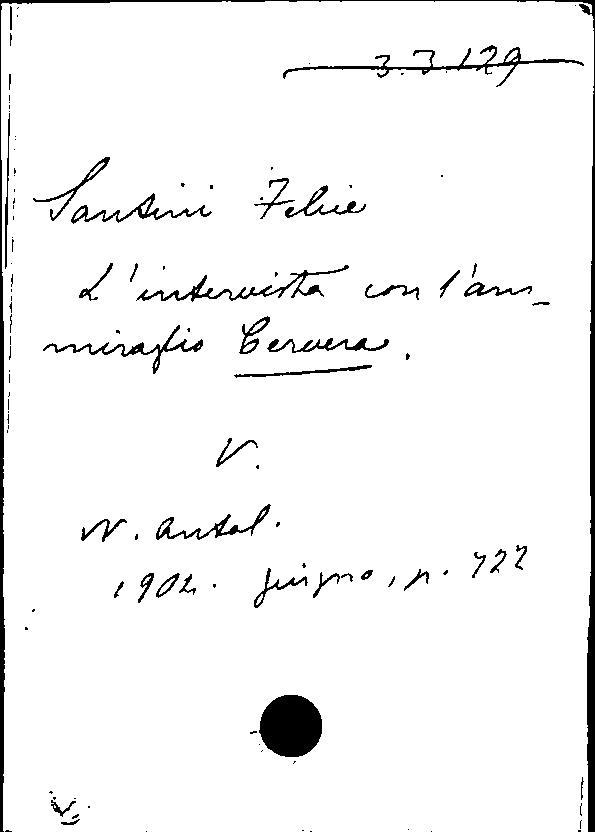 3.3.129
Santini Felice
L'intervista con l'am-
miraglio Cervera.
V.
N. Antol.
1902. giugno, p. 722